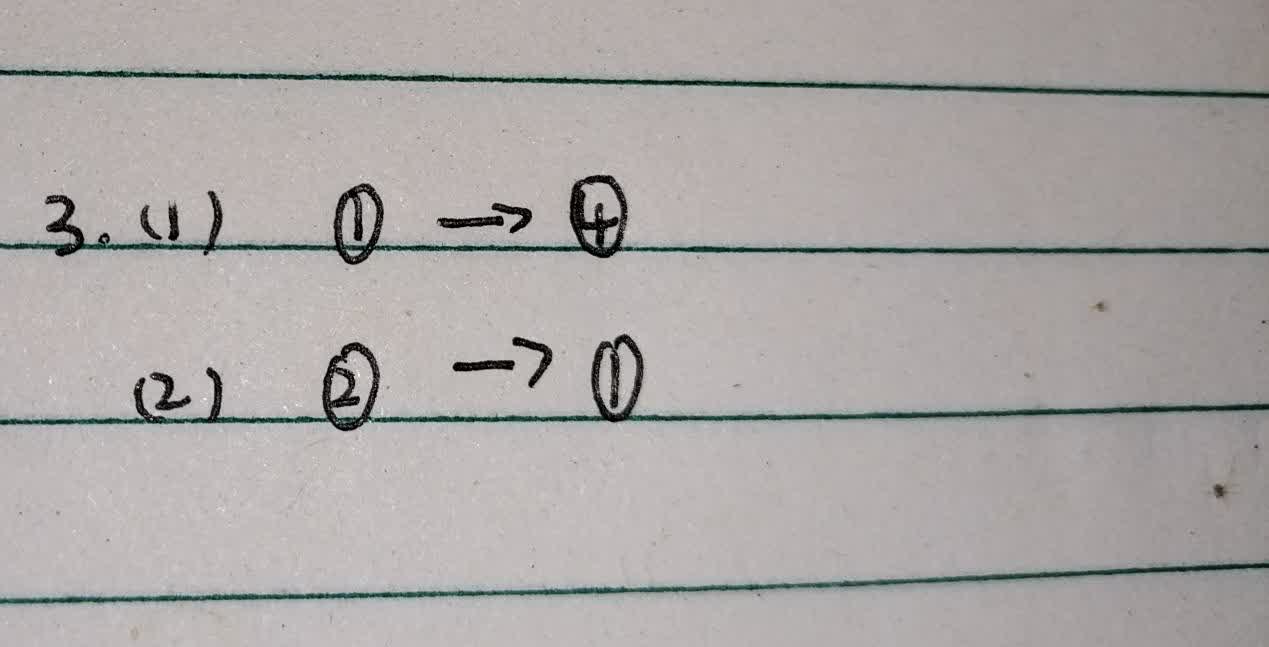 3. (1) ① → ④
(2) ② → ①